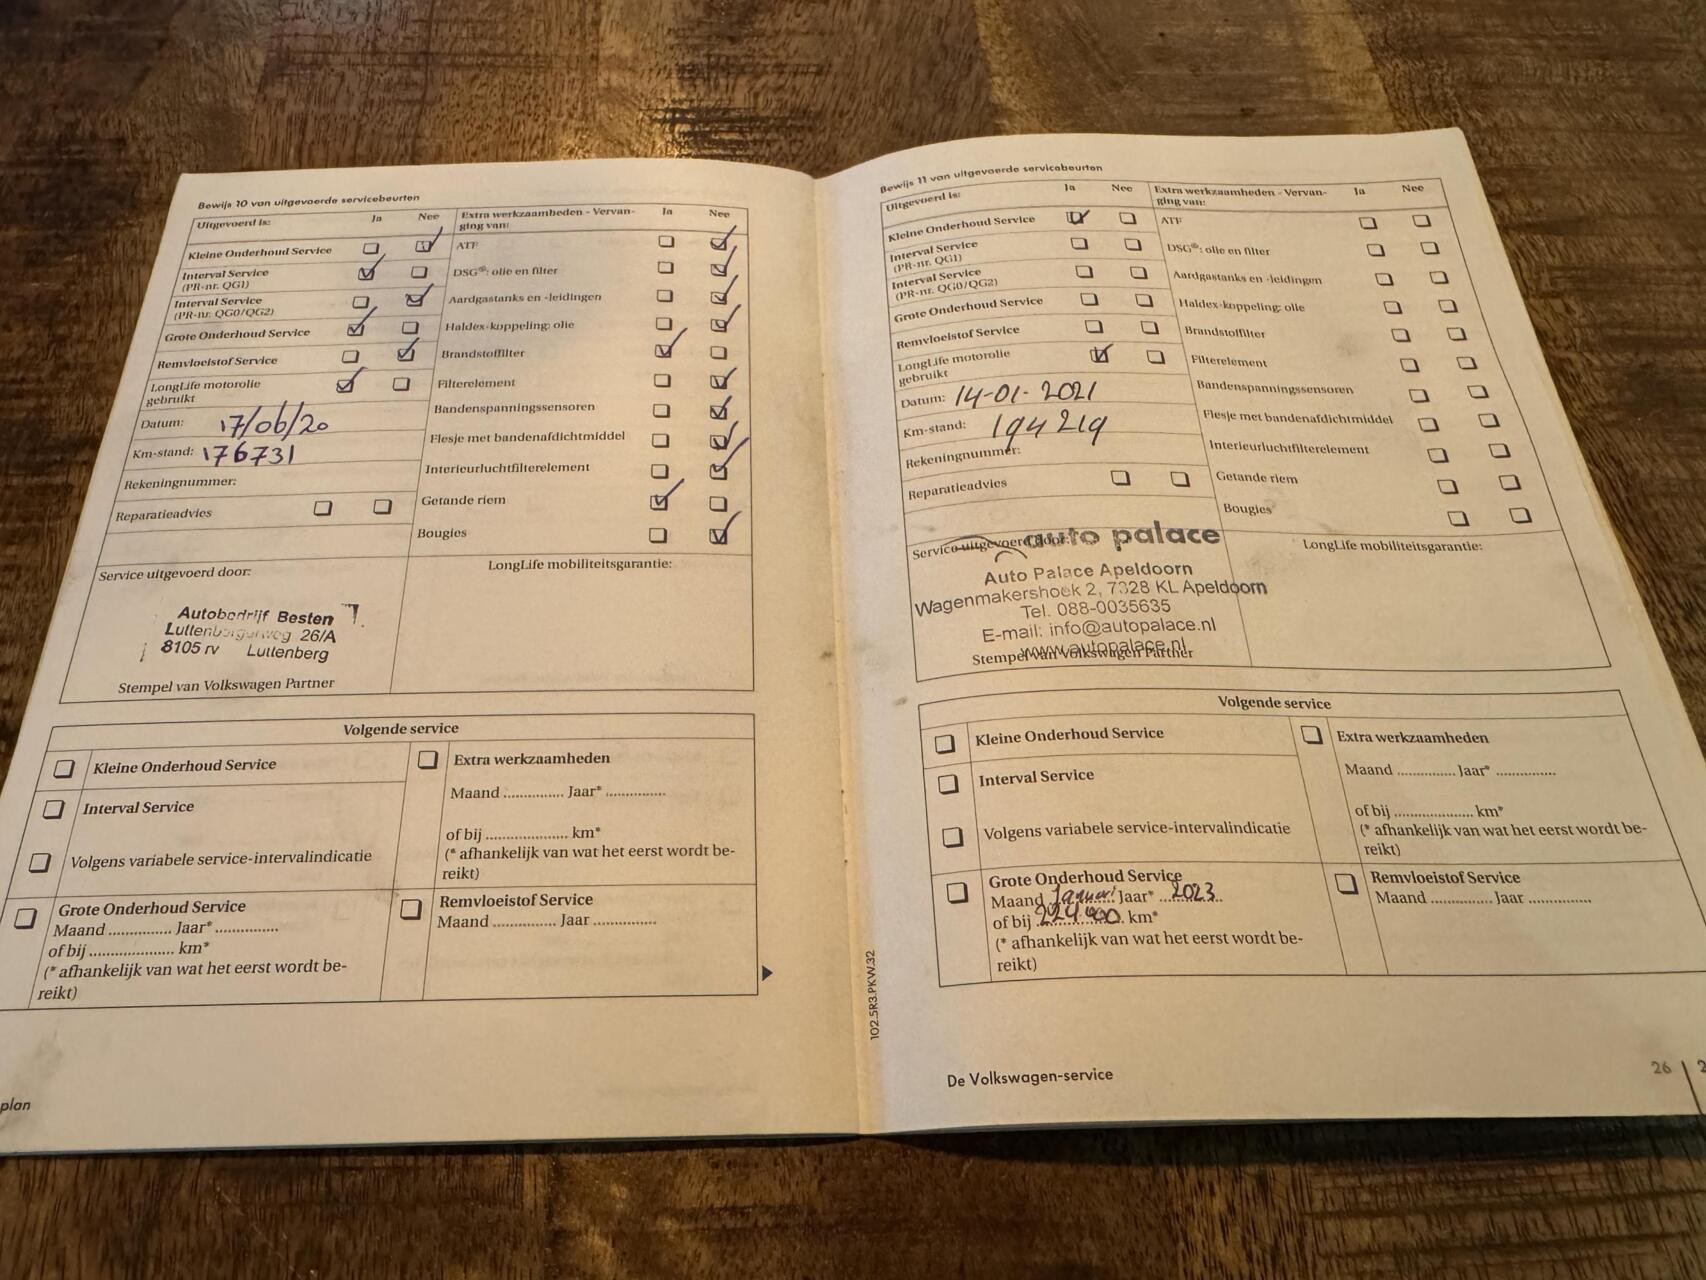 Bewijs 10 van uitgevoerde servicebeurten
Uitgevoerd is: Ja Nee
Kleine Onderhoud Service
Interval Service
(PR-nr. QG1)
Interval Service
(PR-nr. QG0/QG2)
Grote Onderhoud Service
Remvloeistof Service
LongLife motorolie
gebruikt
Datum: 17/06/20
Km-stand: 176731
Rekeningnummer:
Reparatieadvies
Extra werkzaamheden - Vervan-
ging van: Ja Nee
ATF
DSG®: olie en filter
Aardgastanks en -leidingen
Haldex-koppeling: olie
Brandstoffilter
Filterelement
Bandenspanningssensoren
Flesje met bandenafdichtmiddel
Interieurluchtfilterelement
Getande riem
Bougies
Service uitgevoerd door:
Autobedrijf Besten
Luttenbergerweg 26/A
8105 rv Luttenberg
Stempel van Volkswagen Partner
LongLife mobiliteitsgarantie:
Volgende service
Kleine Onderhoud Service
Interval Service
Volgens variabele service-intervalindicatie
Grote Onderhoud Service
Maand .............. Jaar* ..............
of bij .................... km*
(* afhankelijk van wat het eerst wordt be-
reikt)
Extra werkzaamheden
Maand .............. Jaar* ..............
of bij .................... km*
(* afhankelijk van wat het eerst wordt be-
reikt)
Remvloeistof Service
Maand .............. Jaar ..............
plan
Bewijs 11 van uitgevoerde servicebeurten
Uitgevoerd is: Ja Nee
Kleine Onderhoud Service
Interval Service
(PR-nr. QG1)
Interval Service
(PR-nr. QG0/QG2)
Grote Onderhoud Service
Remvloeistof Service
LongLife motorolie
gebruikt
Datum: 14-01-2021
Km-stand: 194219
Rekeningnummer:
Reparatieadvies
Extra werkzaamheden - Vervan-
ging van: Ja Nee
ATF
DSG®: olie en filter
Aardgastanks en -leidingen
Haldex-koppeling: olie
Brandstoffilter
Filterelement
Bandenspanningssensoren
Flesje met bandenafdichtmiddel
Interieurluchtfilterelement
Getande riem
Bougies
Service uitgevoerd door:
auto palace
Auto Palace Apeldoorn
Wagenmakershoek 2, 7328 KL Apeldoorn
Tel. 088-0035635
E-mail: info@autopalace.nl
www.autopalace.nl
Stempel van Volkswagen Partner
LongLife mobiliteitsgarantie:
Volgende service
Kleine Onderhoud Service
Interval Service
Volgens variabele service-intervalindicatie
Grote Onderhoud Service
Maand Januari Jaar* 2023
of bij 224.000 km*
(* afhankelijk van wat het eerst wordt be-
reikt)
Extra werkzaamheden
Maand .............. Jaar* ..............
of bij .................... km*
(* afhankelijk van wat het eerst wordt be-
reikt)
Remvloeistof Service
Maand .............. Jaar ..............
102.5R3.PKW.32
De Volkswagen-service
26